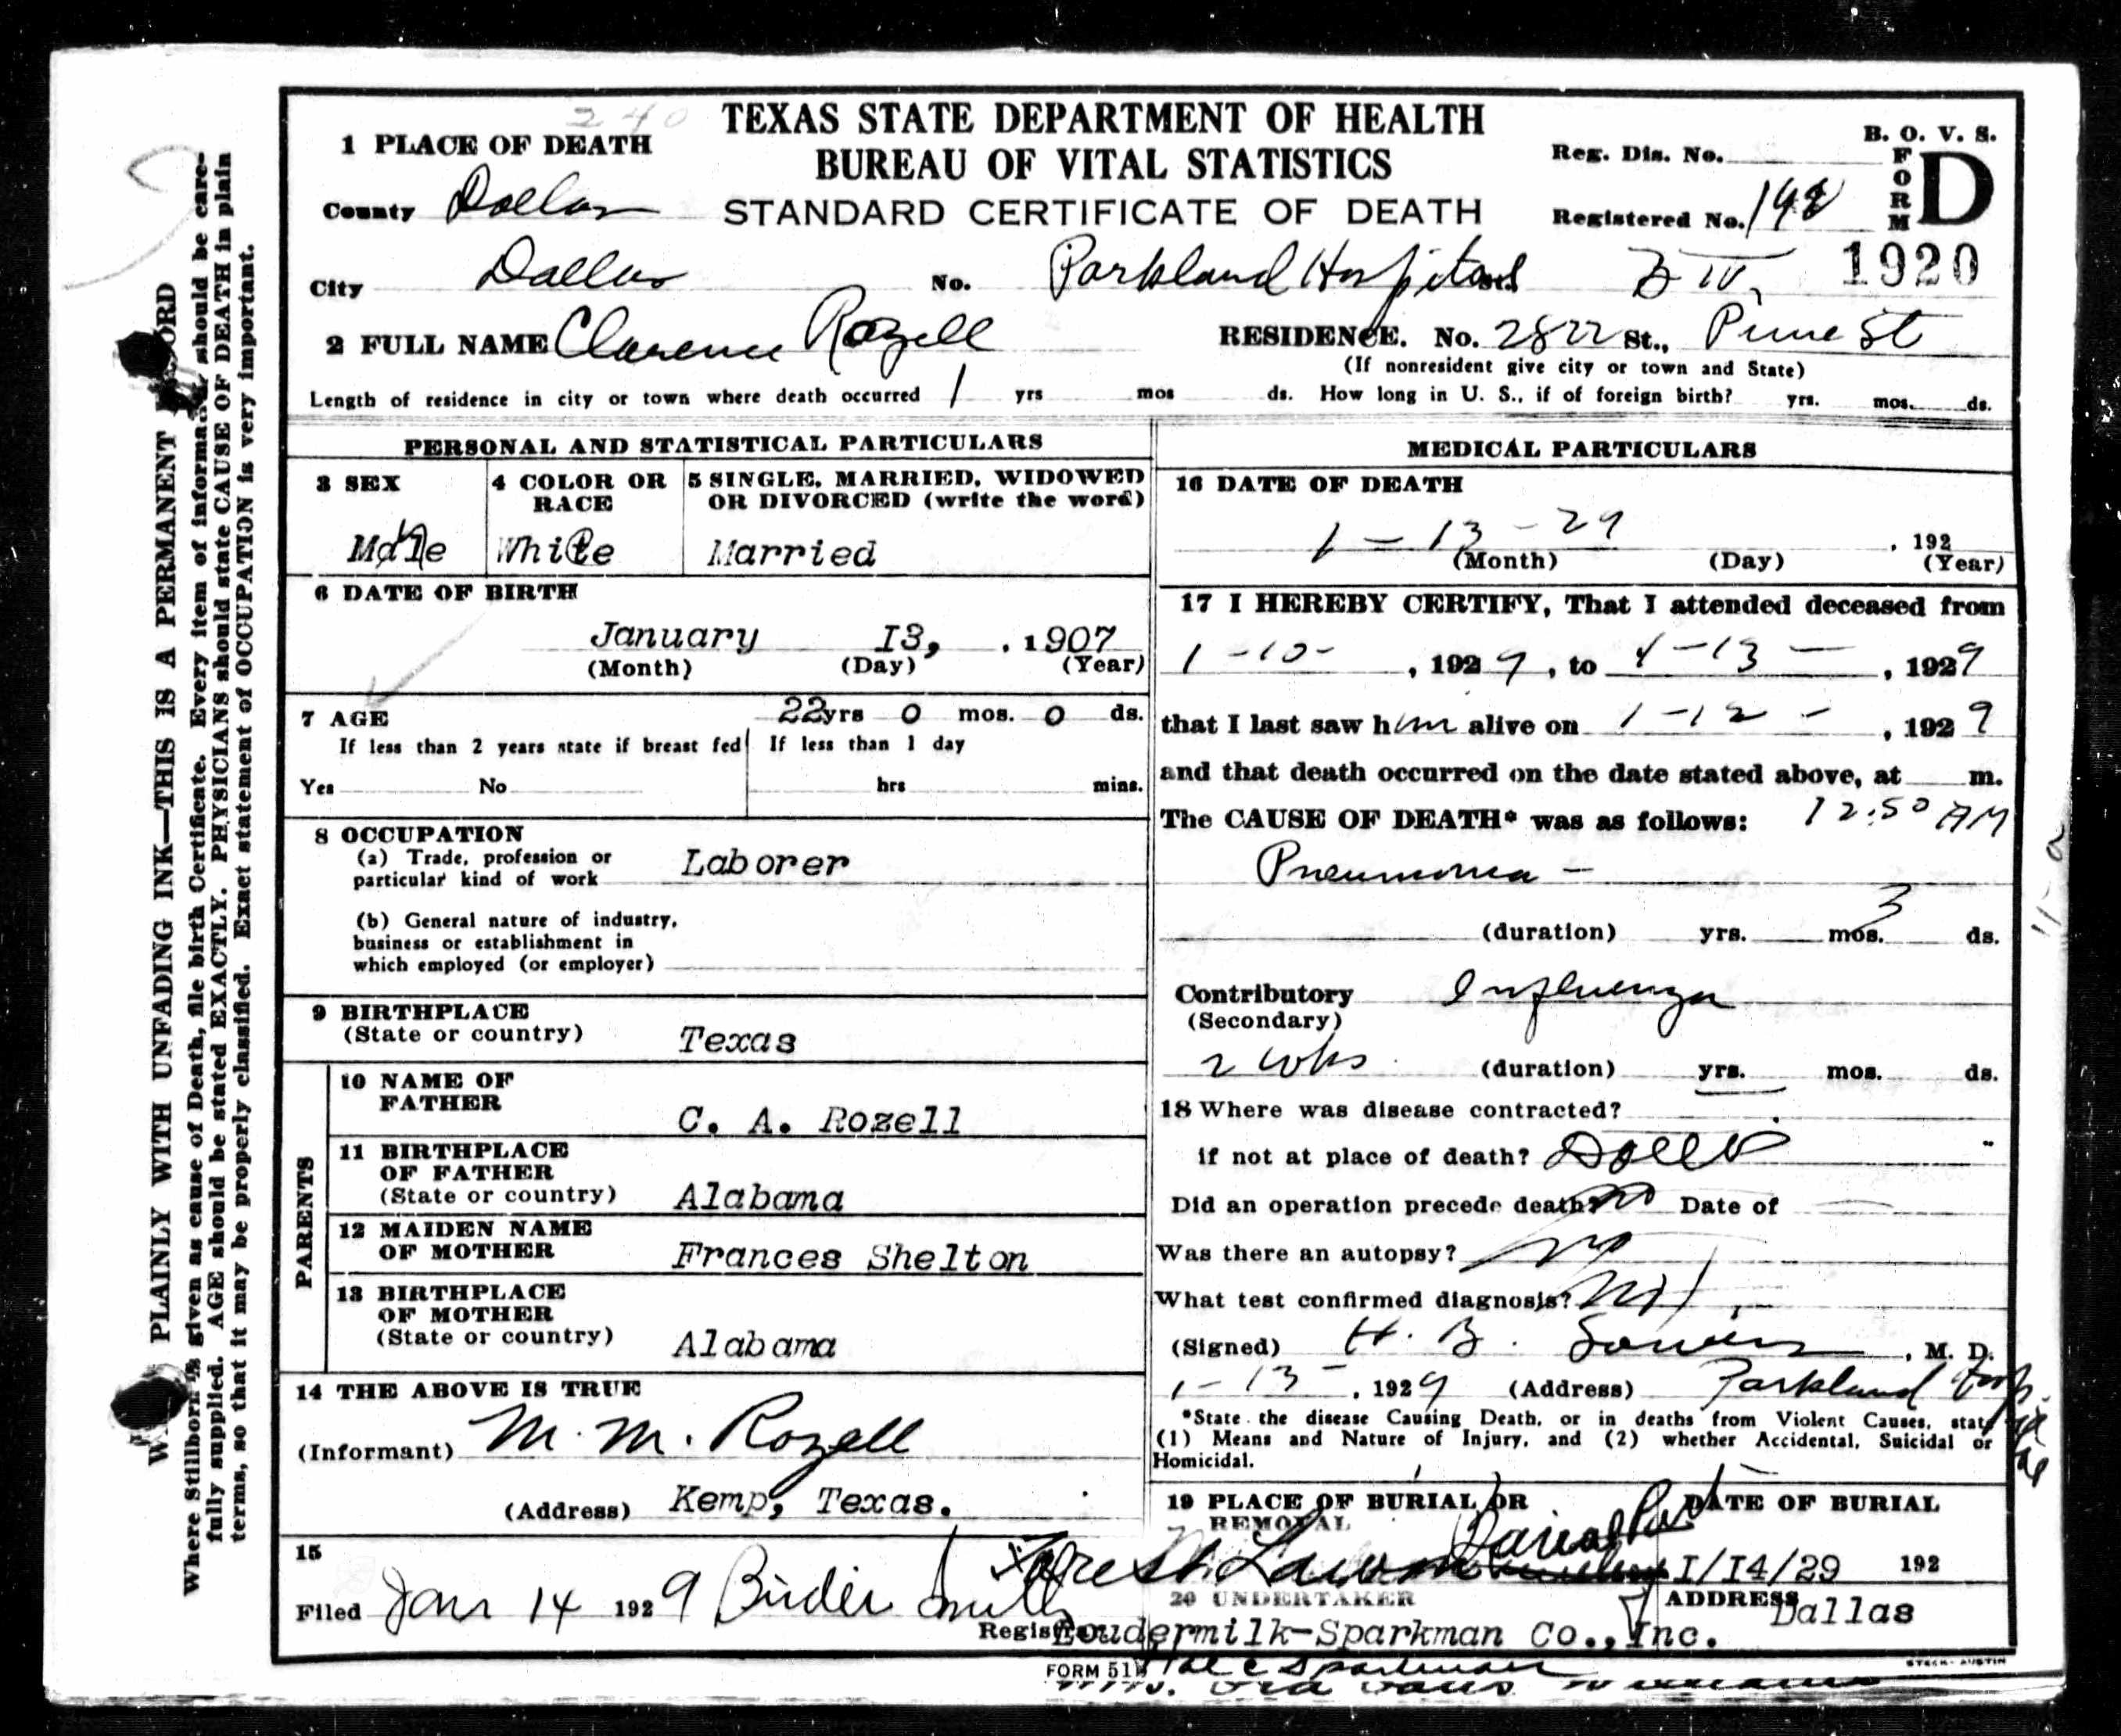 240
TEXAS STATE DEPARTMENT OF HEALTH
BUREAU OF VITAL STATISTICS
STANDARD CERTIFICATE OF DEATH
B. O. V. S.
FORM D
Reg. Dis. No.
Registered No. 192
1920
1 PLACE OF DEATH
County Dallas
City Dallas No. Parkland Hospital St.
2 FULL NAME Clarence Rozell RESIDENCE. No. 2822 St., Pine St
(If nonresident give city or town and State)
Length of residence in city or town where death occurred 1 yrs mos ds. How long in U. S., if of foreign birth? yrs. mos. ds.
PERSONAL AND STATISTICAL PARTICULARS
3 SEX
Male
4 COLOR OR RACE
White
5 SINGLE, MARRIED, WIDOWED
OR DIVORCED (write the word)
Married
6 DATE OF BIRTH
January 13, , 1907
(Month) (Day) (Year)
7 AGE 22 yrs 0 mos. 0 ds.
If less than 2 years state if breast fed If less than 1 day
Yes No hrs mins.
8 OCCUPATION
(a) Trade, profession or
particular kind of work Laborer
(b) General nature of industry,
business or establishment in
which employed (or employer)
9 BIRTHPLACE
(State or country) Texas
PARENTS
10 NAME OF
FATHER C. A. Rozell
11 BIRTHPLACE
OF FATHER
(State or country) Alabama
12 MAIDEN NAME
OF MOTHER Frances Shelton
13 BIRTHPLACE
OF MOTHER
(State or country) Alabama
14 THE ABOVE IS TRUE
(Informant) M. M. Rozell
(Address) Kemp, Texas.
15
Filed Jan 14 1929 Birdie Smith
Registrar
MEDICAL PARTICULARS
16 DATE OF DEATH
1-13-29 , 192
(Month) (Day) (Year)
17 I HEREBY CERTIFY, That I attended deceased from
1-10- , 1929, to 1-13- , 1929
that I last saw him alive on 1-12- , 1929
and that death occurred on the date stated above, at m.
The CAUSE OF DEATH* was as follows: 12:50 AM
Pneumonia -
(duration) yrs. mos. 3 ds.
Contributory Influenza
(Secondary)
2 wks (duration) yrs. mos. ds.
18 Where was disease contracted?
if not at place of death? Dallas
Did an operation precede death? no Date of
Was there an autopsy? no
What test confirmed diagnosis?
(Signed) H. B. , M. D.
1-13- , 1929 (Address) Parkland Hospital
*State the disease Causing Death, or in deaths from Violent Causes, state
(1) Means and Nature of Injury, and (2) whether Accidental, Suicidal or
Homicidal.
19 PLACE OF BURIAL OR
REMOVAL
Forest Lawn Burial Park
DATE OF BURIAL
1/14/29 192
20 UNDERTAKER
Loudermilk-Sparkman Co., Inc.
ADDRESS Dallas
FORM 511
STECK-AUSTIN
WRITE PLAINLY WITH UNFADING INK—THIS IS A PERMANENT RECORD
Where Stillborn is given as cause of Death, file birth Certificate. Every item of information should be care-
fully supplied. AGE should be stated EXACTLY. PHYSICIANS should state CAUSE OF DEATH in plain
terms, so that it may be properly classified. Exact statement of OCCUPATION is very important.
11-a